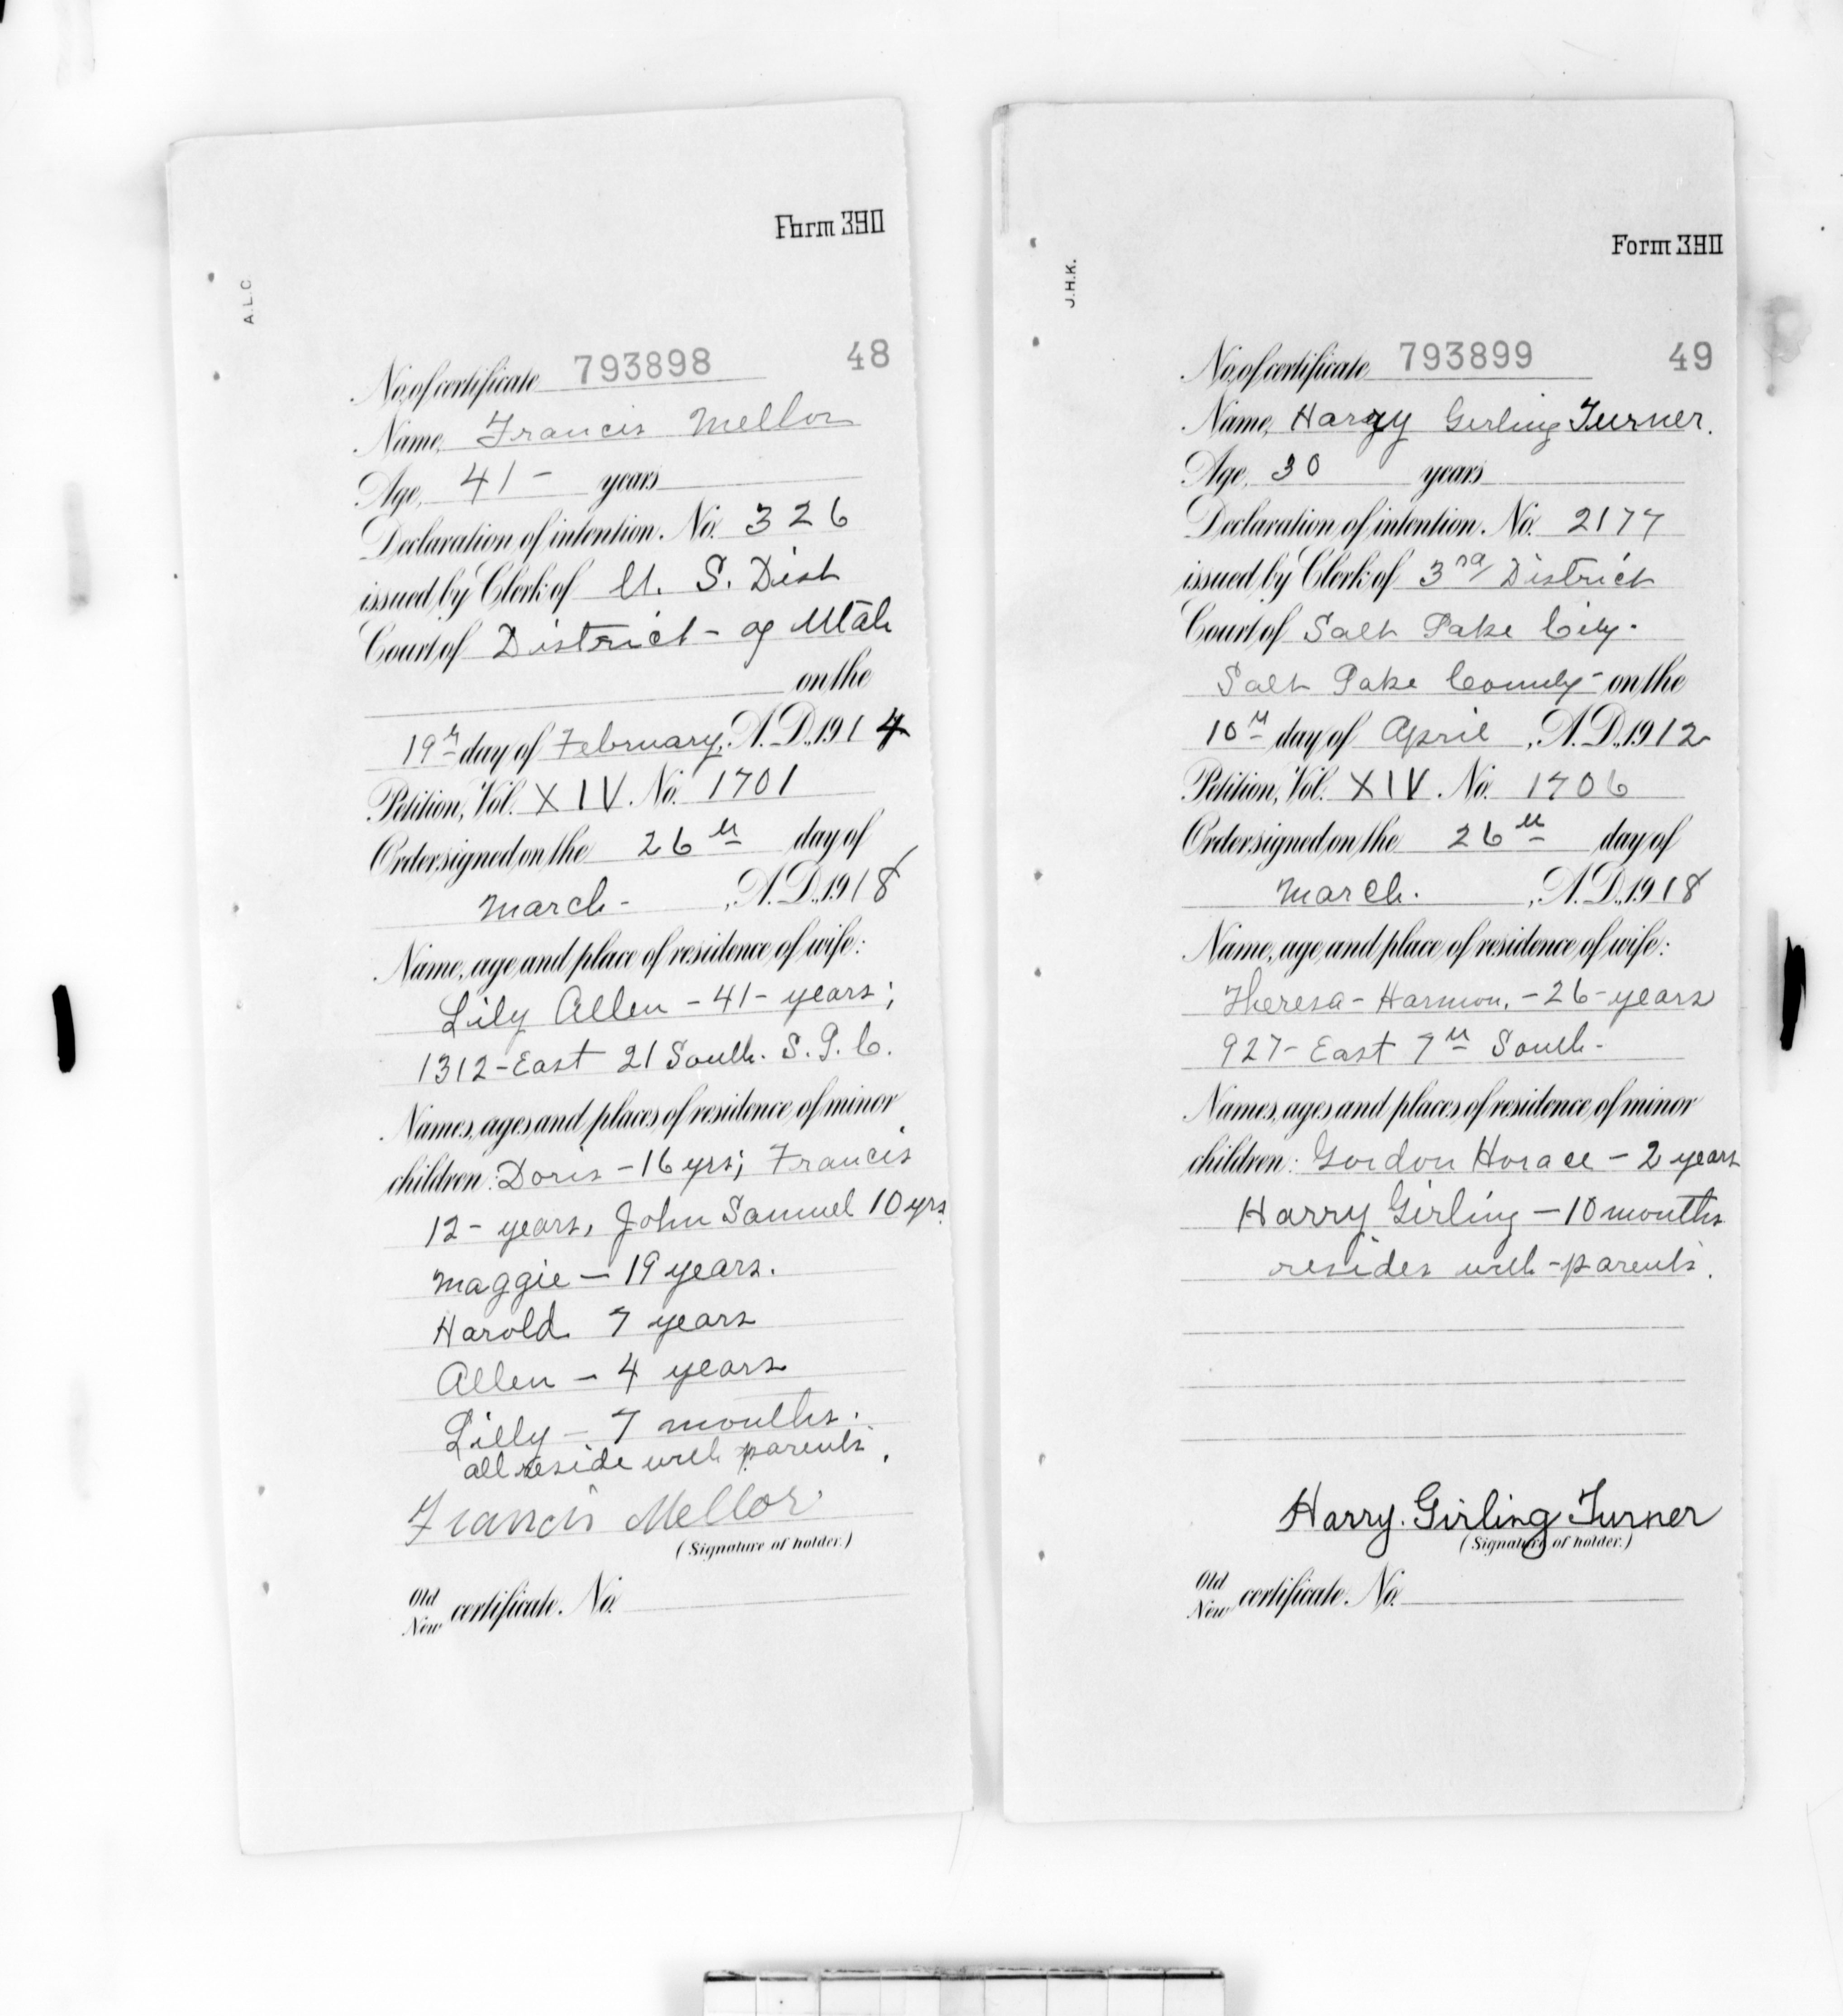 Form 390
A.L.C.
No. of certificate 793898 48
Name, Francis Mellor
Age, 41 - years
Declaration of intention. No. 326
issued by Clerk of U. S. Dist
Court of District - of Utah
on the
19th day of February, A. D., 1914
Petition, Vol. XIV. No. 1701
Order signed on the 26th day of
March - , A. D., 1918
Name, age and place of residence of wife:
Lily Allen - 41 - years;
1312 - East 21 South. S. L. C.
Names, ages and places of residence of minor
children: Doris - 16 yrs; Francis
12 - years, John Samuel 10 yrs.
Maggie - 19 years.
Harold 7 years
Allen - 4 years
Lilly - 7 months.
all reside with parents.
Francis Mellor
(Signature of holder.)
Old
New certificate. No.
Form 390
J.H.K.
No. of certificate 793899 49
Name, Harry Girling Turner.
Age, 30 years
Declaration of intention. No. 2177
issued by Clerk of 3rd District
Court of Salt Lake City.
Salt Lake County - on the
10th day of April, A. D., 1912
Petition, Vol. XIV. No. 1706
Order signed on the 26th day of
March. , A. D., 1918
Name, age and place of residence of wife:
Theresa - Harmon, - 26 - years
927 - East 7th South -
Names, ages and places of residence of minor
children: Gordon Horace - 2 years
Harry Girling - 10 months
resides with - parents.
Harry. Girling Turner
(Signature of holder.)
Old
New certificate. No.